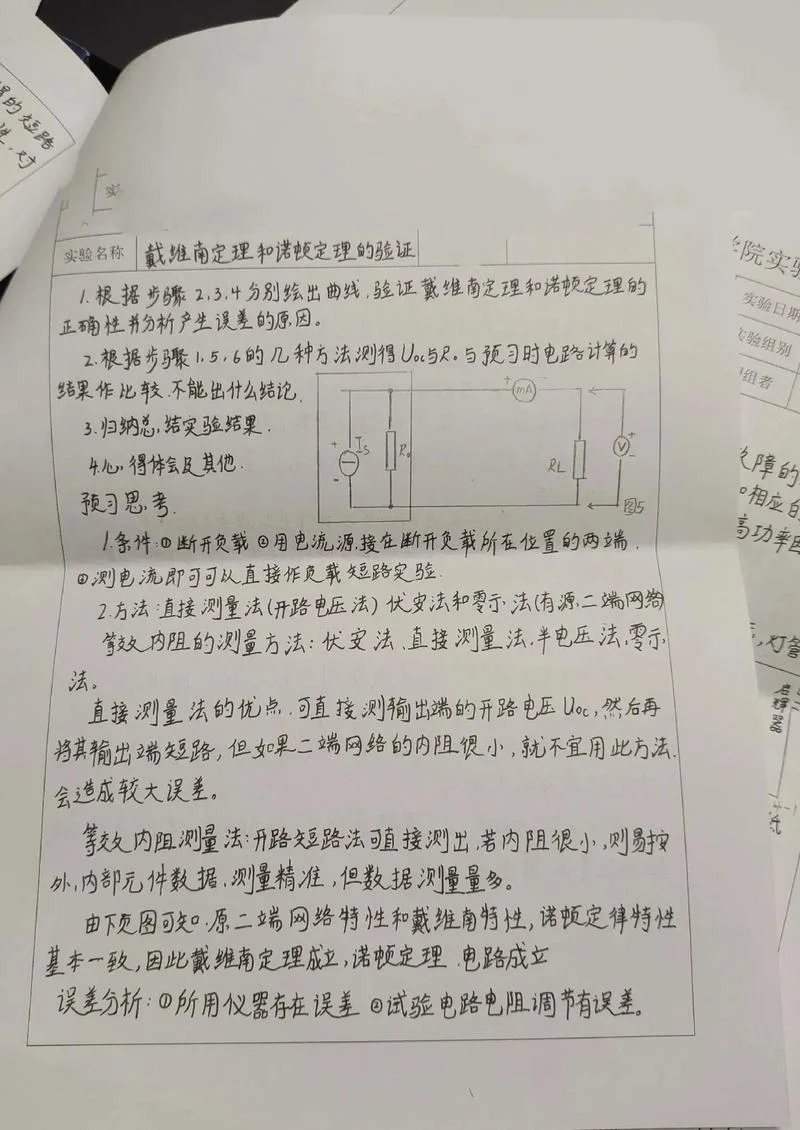 得的短路
实
实验名称 戴维南定理和诺顿定理的验证
1.根据步骤2,3,4分别绘出曲线,验证戴维南定理和诺顿定理的
正确性并分析产生误差的原因。
2.根据步骤1,5,6的几种方法测得Uoc与R。与预习时电路计算的
结果作比较.不能出什么结论.
3.归纳总,结实验结果.
4.心,得体会及其他.
预习思考.
+ mA -
+ Is -
R。
RL
V + -
图5
1.条件:①断开负载 ②用电流源,接在断开负载所在位置的两端.
②测电流即可可以直接作负载短路实验.
2.方法:直接测量法(开路电压法) 伏安法和零示,法(有源,二端网络)
等效内阻的测量方法:伏安法、直接测量法.半电压法,零示,
法。
直接测量法的优点.可直接测输出端的开路电压Uoc,然后再
将其输出端短路,但如果二端网络的内阻很小,就不宜用此方法.
会造成较大误差。
等效内阻测量法:开路短路法可直接测出,若内阻很小,则易按
外,内部元件数据,测量精准,但数据测量量多。
由下页图可知.原二端网络特性和戴维南特性,诺顿定律特性
基本一致,因此戴维南定理成立,诺顿定理.电路成立
误差分析:①所用仪器存在误差 ②试验电路电阻调节有误差。
学院实验
实验日期
实验组别
组者
障的
相应的
高功率因
灯管
启辉器